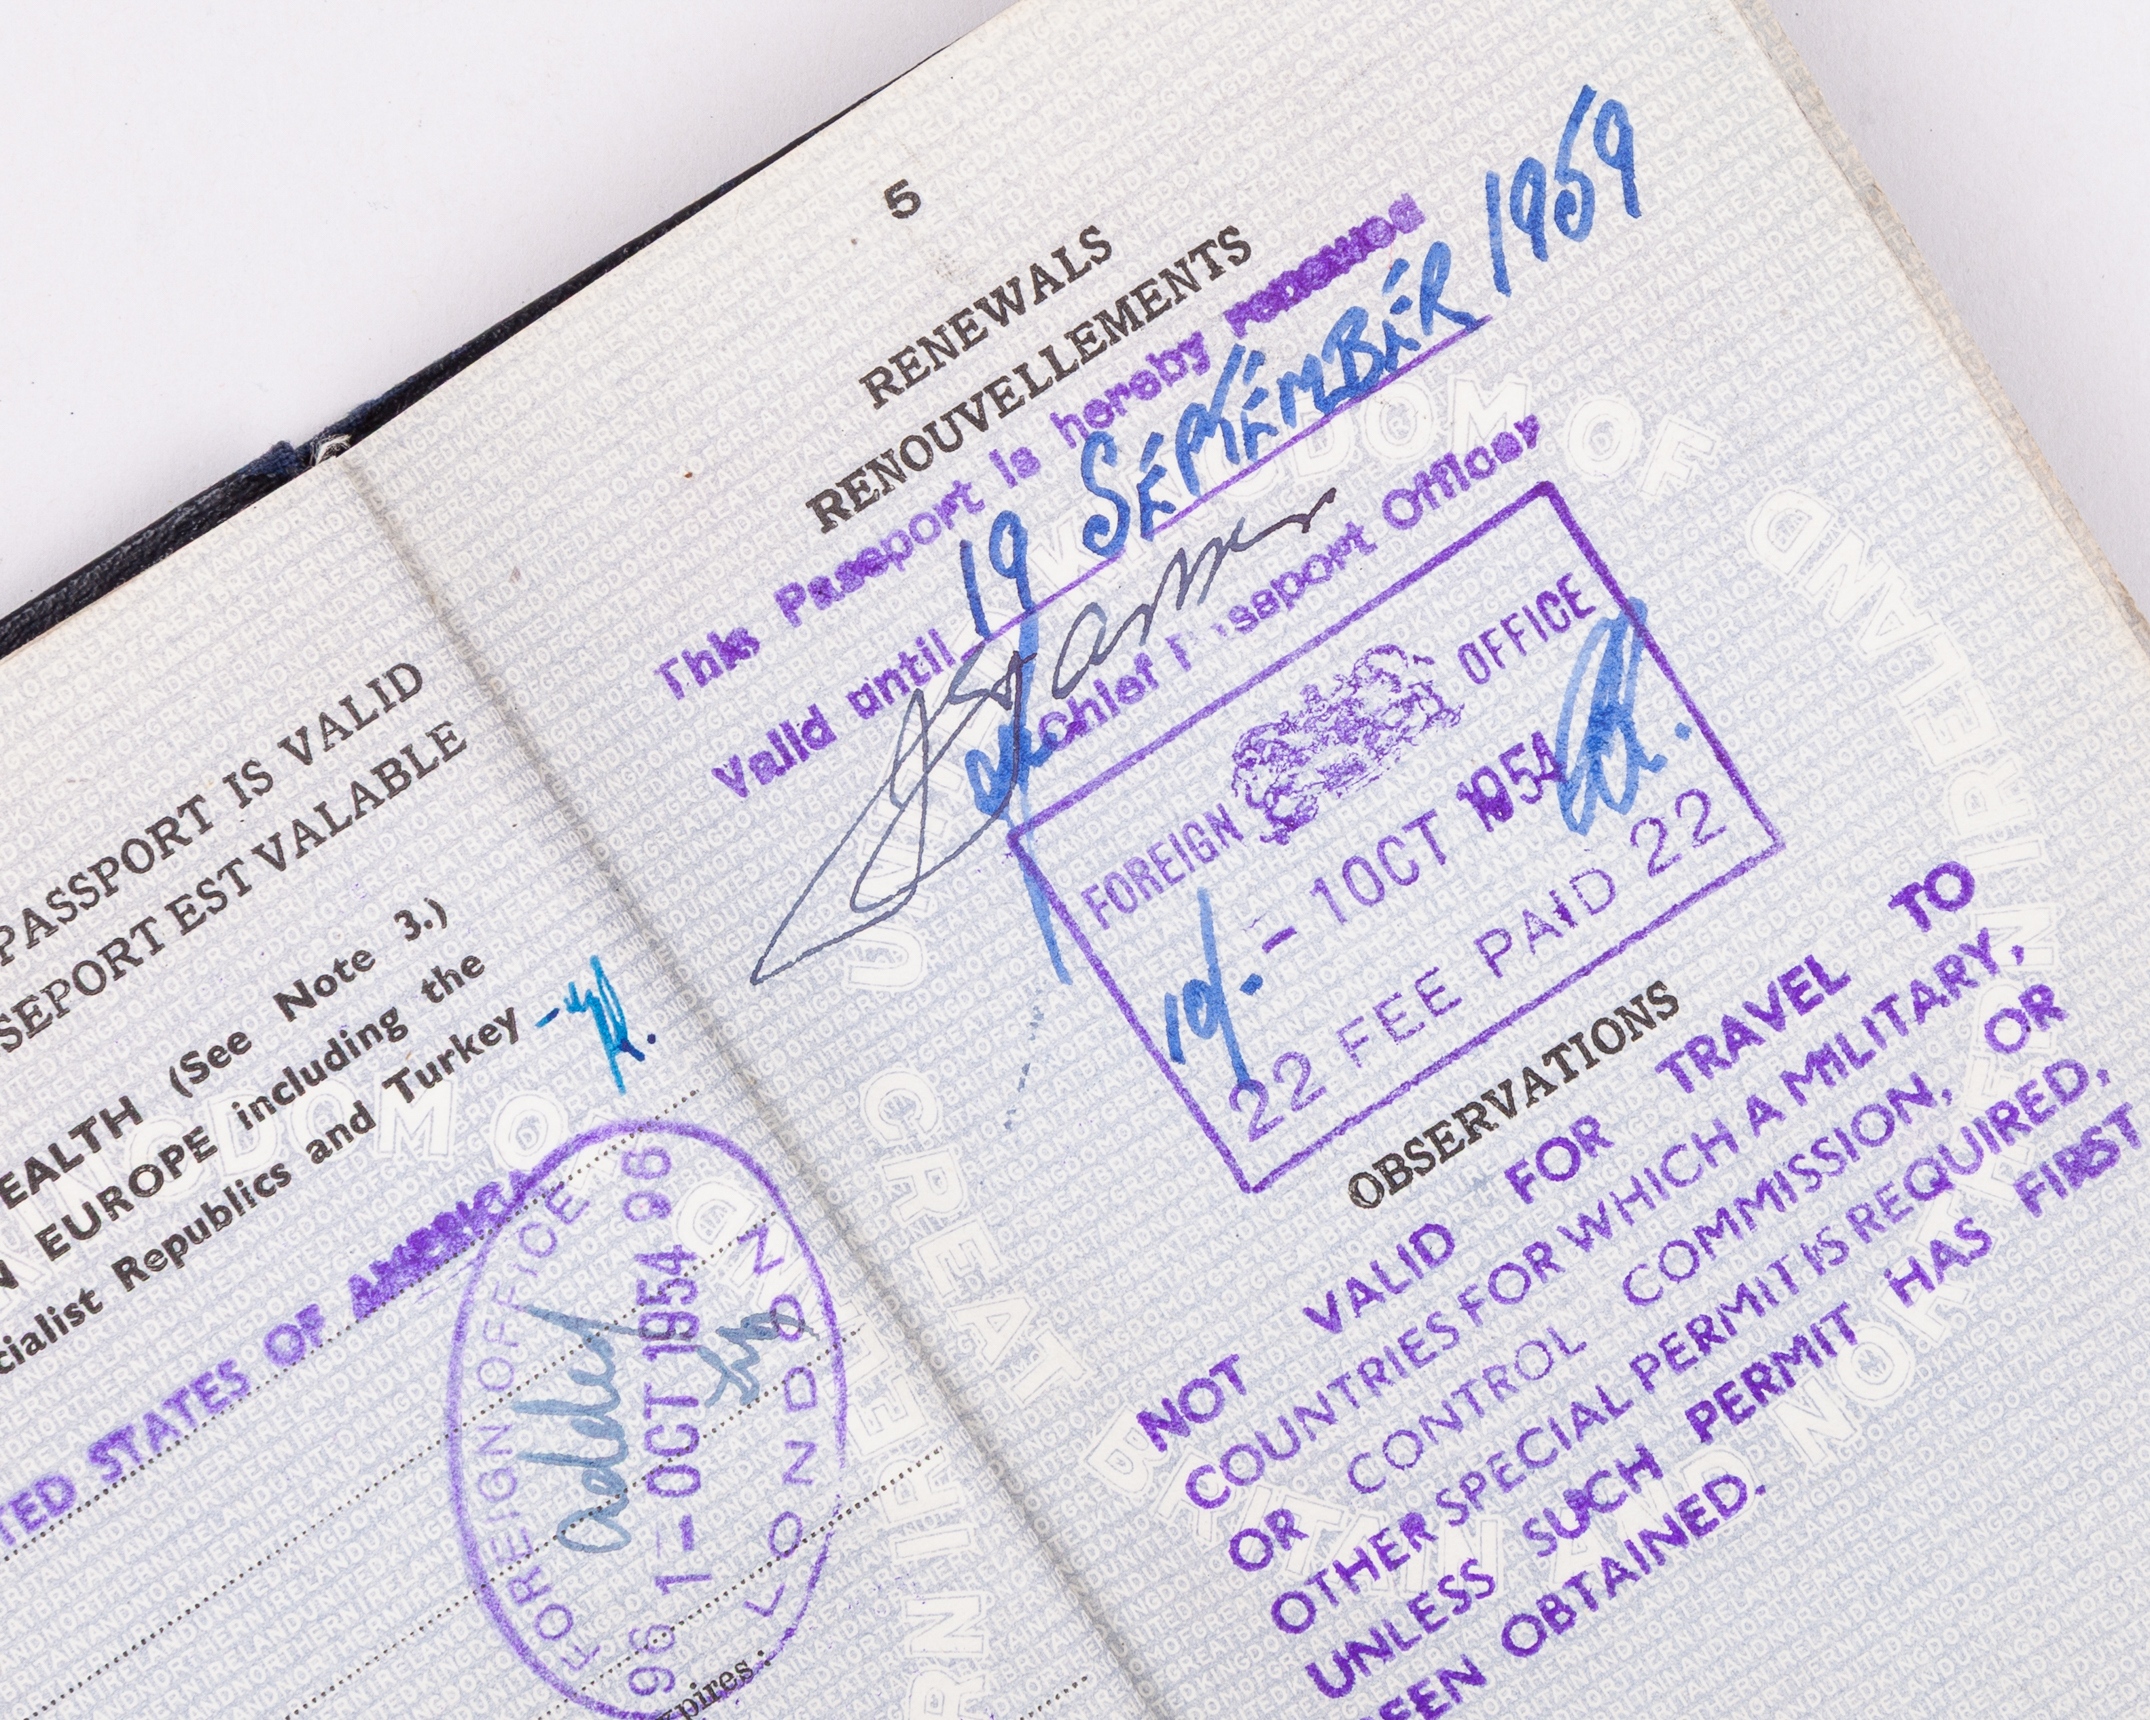 PASSPORT IS VALID
SEPORT EST VALABLE
EALTH (See Note 3.)
N EUROPE including the
cialist Republics and Turkey
TED STATES OF AMERICA
FOREIGN OFFICE
96 1-OCT 1954 96
LONDON
added
xpires:
5
RENEWALS
RENOUVELLEMENTS
This Passport is hereby renewed
Valid until 19 SEPTEMBER 1959
Chief Passport Officer
FOREIGN OFFICE
- 1 OCT 1954
10/-
22 FEE PAID 22
OBSERVATIONS
NOT VALID FOR TRAVEL TO
COUNTRIES FOR WHICH A MILITARY,
OR CONTROL COMMISSION, OR
OTHER SPECIAL PERMIT IS REQUIRED,
UNLESS SUCH PERMIT HAS FIRST
EEN OBTAINED.